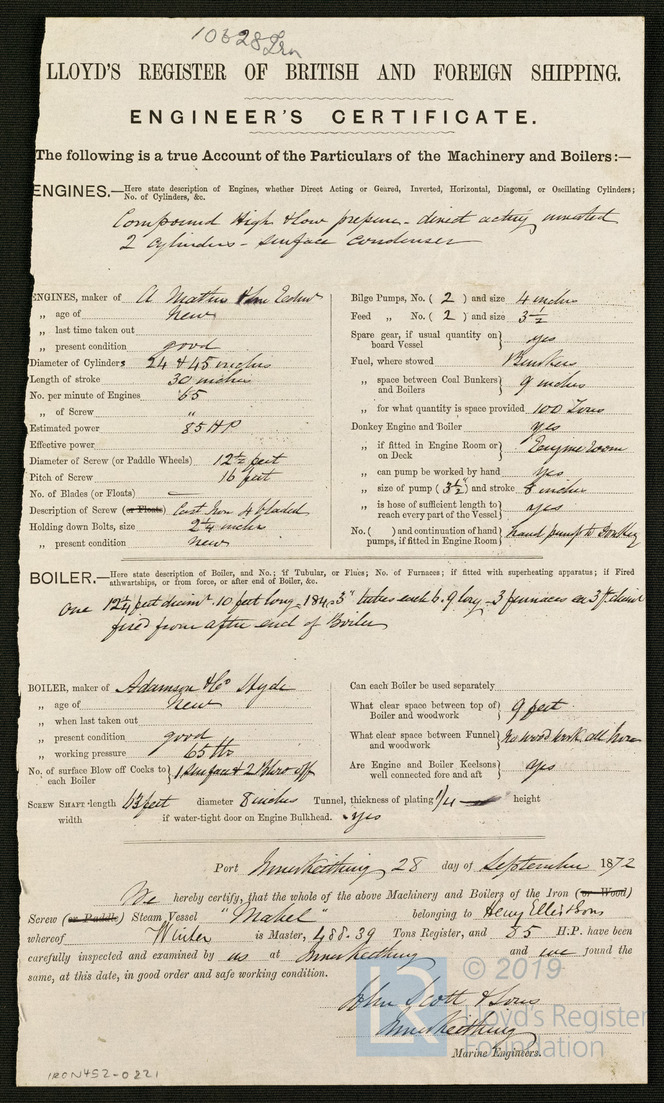 10628 Irn
LLOYD'S REGISTER OF BRITISH AND FOREIGN SHIPPING.
ENGINEER'S CERTIFICATE.
The following is a true Account of the Particulars of the Machinery and Boilers:—
ENGINES.—Here state description of Engines, whether Direct Acting or Geared, Inverted, Horizontal, Diagonal, or Oscillating Cylinders;
No. of Cylinders, &c.
Compound High & Low pressure - direct acting inverted
2 cylinders - surface condenser
ENGINES, maker of A Mather
„ age of New
„ last time taken out
„ present condition good
Diameter of Cylinders 24 & 45 inches
Length of stroke 30 inches
No. per minute of Engines 65
„ of Screw „
Estimated power 85 HP
Effective power
Diameter of Screw (or Paddle Wheels) 12½ feet
Pitch of Screw 16 feet
No. of Blades (or Floats) —
Description of Screw (or Floats) Cast Iron 4 bladed
Holding down Bolts, size 2¼ inches
„ present condition New
Bilge Pumps, No. ( 2 ) and size 4 inches
Feed „ No. ( 2 ) and size 3½
Spare gear, if usual quantity on board Vessel } yes
Fuel, where stowed Bunkers
„ space between Coal Bunkers and Boilers } 9 inches
„ for what quantity is space provided 100 Tons
Donkey Engine and Boiler yes
„ if fitted in Engine Room or on Deck } Engine Room
„ can pump be worked by hand yes
„ size of pump ( 3½" ) and stroke 8 inches
„ is hose of sufficient length to reach every part of the Vessel } yes
No. ( ) and continuation of hand pumps, if fitted in Engine Room } hand pump to Donkey
BOILER.—Here state description of Boiler, and No.; if Tubular, or Flues; No. of Furnaces; if fitted with superheating apparatus; if Fired
athwartships, or from force, or after end of Boiler, &c.
One 12¼ feet diamr. 10 feet long, 184, 3" tubes each 6.9 long - 3 furnaces ea 3 ft diam
fired from after end of Boiler
BOILER, maker of Adamson & Co Hyde
„ age of New
„ when last taken out
„ present condition good
„ working pressure 65 lbs
No. of surface Blow off Cocks to each Boiler } 1 Surface & 2 Blow off
Can each Boiler be used separately
What clear space between top of Boiler and woodwork } 9 feet
What clear space between Funnel and woodwork } No wood work all Iron
Are Engine and Boiler Keelsons well connected fore and aft } yes
SCREW SHAFT length 43 feet diameter 8 inches Tunnel, thickness of plating 1/4 height
width if water-tight door on Engine Bulkhead. yes
Port Innerkeithing 28 day of September 1872
We hereby certify, that the whole of the above Machinery and Boilers of the Iron (or Wood)
Screw (or Paddle) Steam Vessel "Mabel" belonging to Henry Ellis & Sons
whereof Winter is Master, 488.39 Tons Register, and 85 H.P. have been
carefully inspected and examined by us at Innerkeithing and we found the
same, at this date, in good order and safe working condition.
John Scott & Sons
Innerkeithing
Marine Engineers.
LR © 2019
Lloyd's Register
Foundation
IRON452-0221